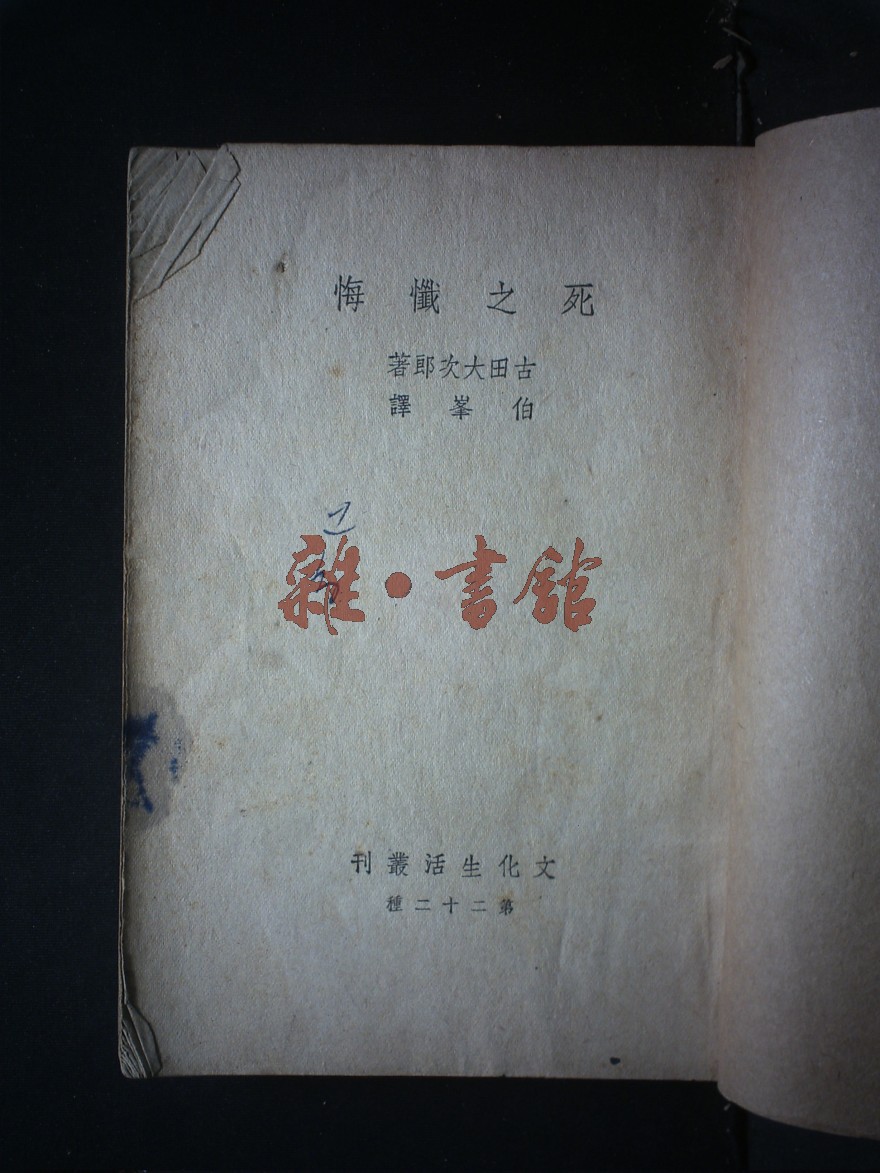 死之懺悔
古田大次郎著
伯峯譯
雜·書館
文化生活叢刊
第二十二種